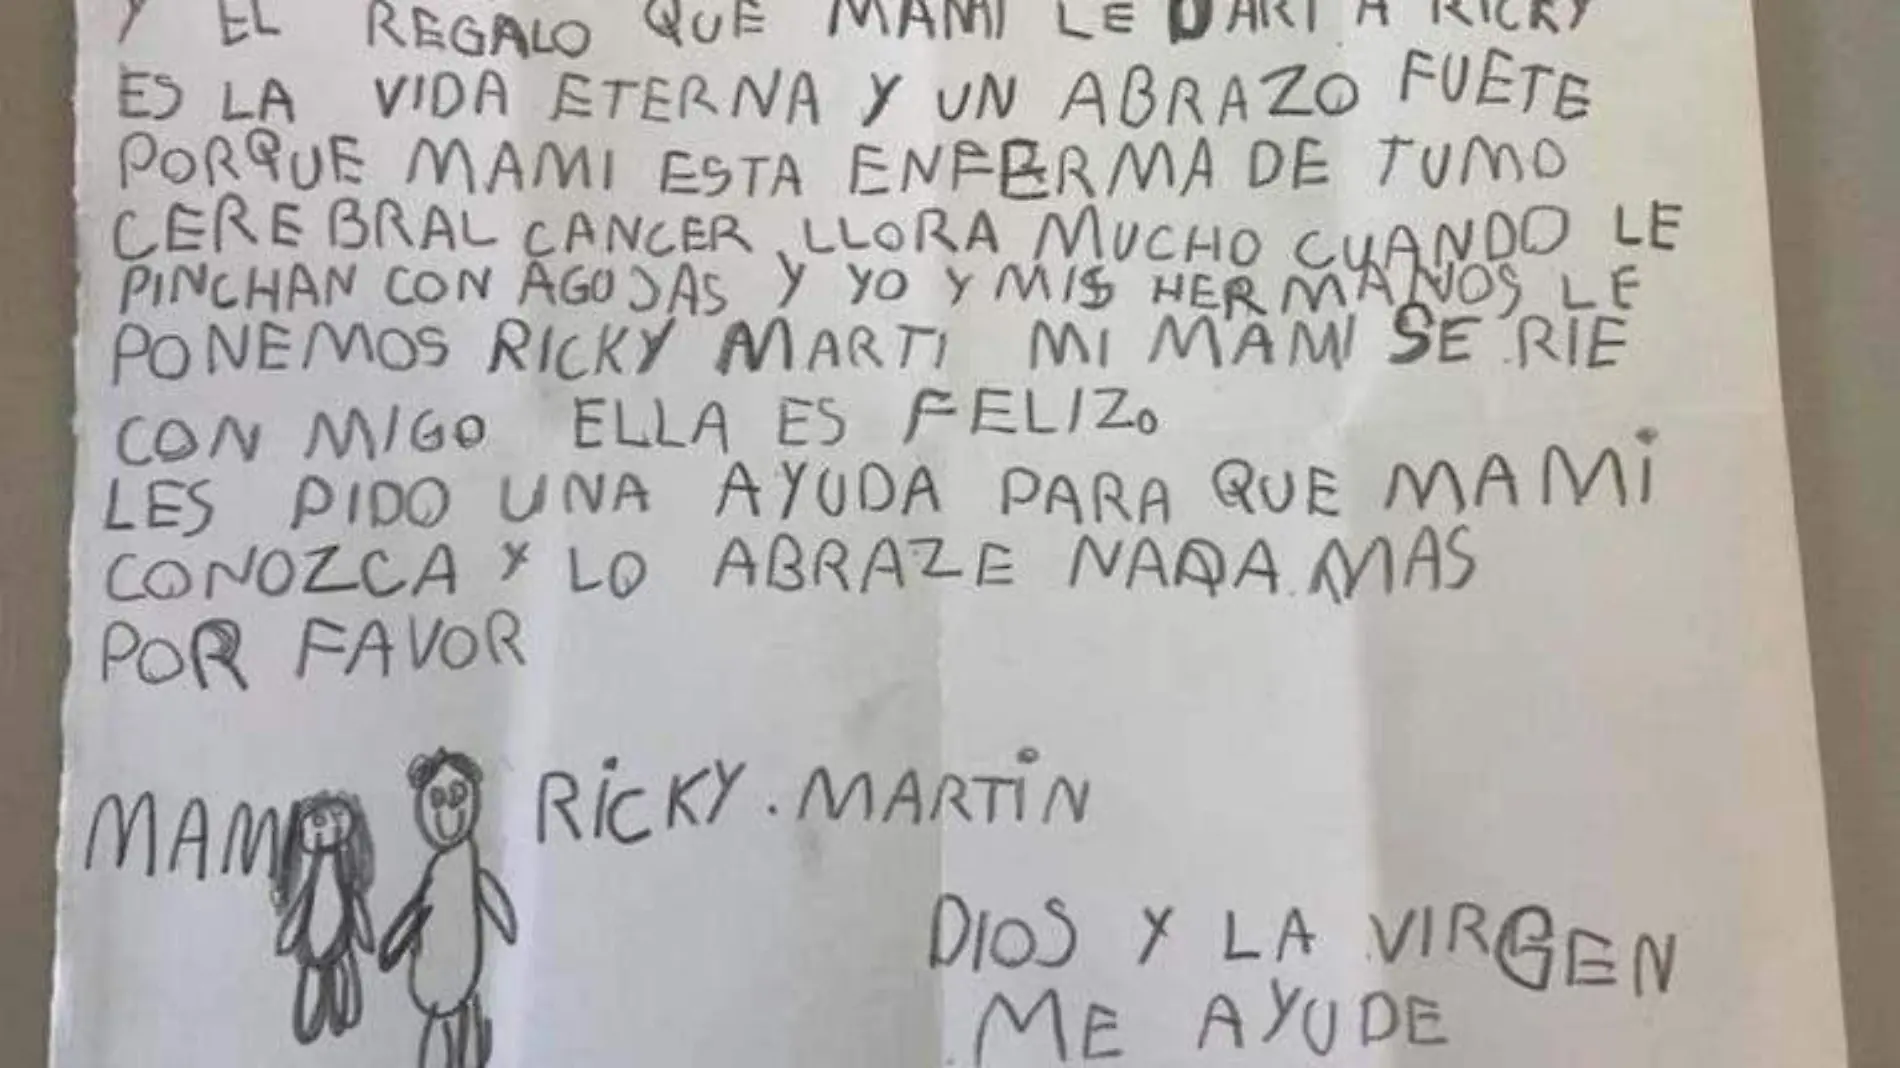 Y EL REGALO QUE MAMI LE DARI A RICKY
ES LA VIDA ETERNA Y UN ABRAZO FUETE
PORQUE MAMI ESTA ENFERMA DE TUMO
CEREBRAL CANCER, LLORA MUCHO CUANDO LE
PINCHAN CON AGUJAS Y YO Y MIS HERMANOS LE
PONEMOS RICKY MARTI MI MAMI SE RIE
CON MIGO ELLA ES FELIZ.
LES PIDO UNA AYUDA PARA QUE MAMI
CONOZCA Y LO ABRAZE NADA MAS
POR FAVOR
MAMI
RICKY. MARTIN
DIOS Y LA VIRGEN
ME AYUDE